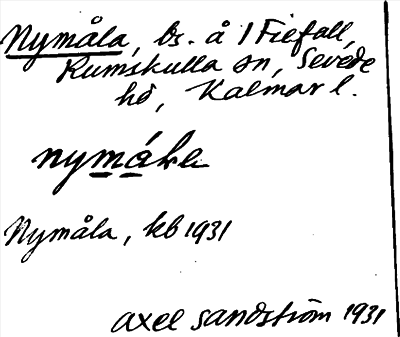 Nymåla, bs. å 1 Fiefall,
Rumskulla sn, Sevede
hd, Kalmar l.
nymála
Nymåla, kb 1931
Axel Sandström 1931